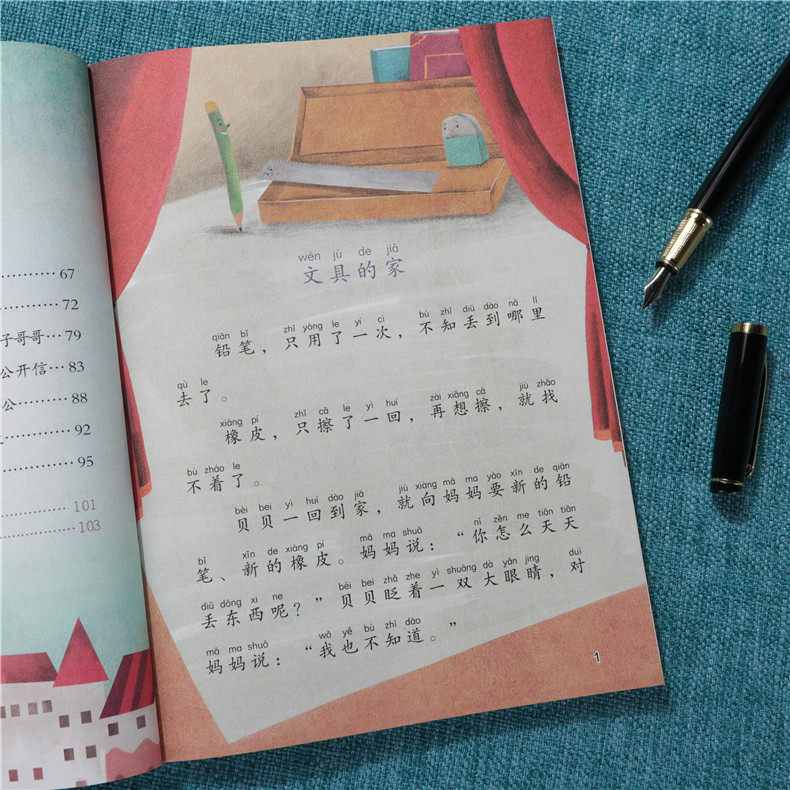 67
72
子哥哥…79
公开信…83
公……88
92
95
101
103
wén jù de jiā
文具的家
qiān bǐ zhǐ yòng le yí cì bù zhī diū dào nǎ lǐ
铅笔，只用了一次，不知丢到哪里
qù le
去了。
xiàng pí zhǐ cā le yì huí zài xiǎng cā jiù zhǎo
橡皮，只擦了一回，再想擦，就找
bù zháo le
不着了。
bèi bei yì huí dào jiā jiù xiàng mā ma yào xīn de qiān
贝贝一回到家，就向妈妈要新的铅
bǐ xīn de xiàng pí mā ma shuō nǐ zěn me tiān tiān
笔、新的橡皮。妈妈说：“你怎么天天
diū dōng xi ne bèi bei zhǎ zhe yì shuāng dà yǎn jing duì
丢东西呢？”贝贝眨着一双大眼睛，对
mā ma shuō wǒ yě bù zhī dào
妈妈说：“我也不知道。”
1